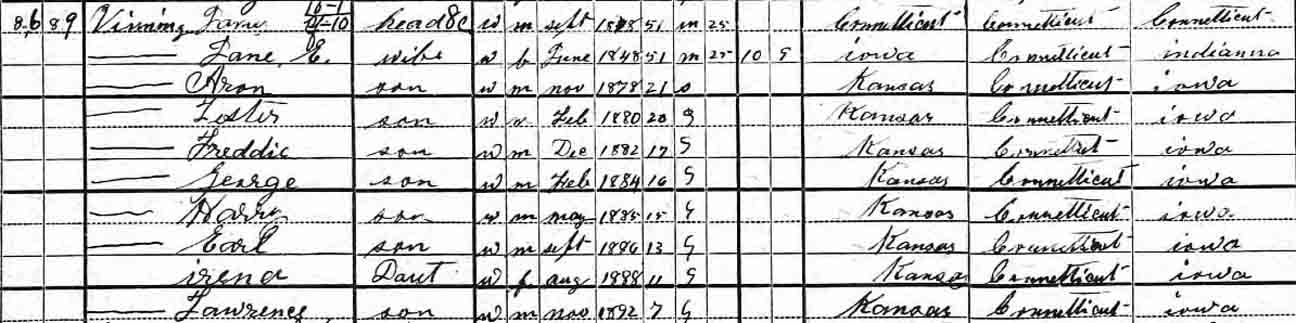 86 89 Vinning head w m sept 51 m 25 Connetticut Connetticut Connetticut
Jane E. wife w f June 1848 51 m 25 10 9 iowa Connetticut indianna
Aron son w m nov 1878 21 s Kansas Connetticut iowa
Lester son w Feb 1880 20 S Kansas Connetticut iowa
Freddie son w m Dec 1882 17 S Kansas Connetticut iowa
George son w m Feb 1884 16 S Kansas Connetticut iowa
Harry son w m may 1885 15 S Kansas Connetticut iowa
Earl son w m sept 1886 13 S Kansas Connetticut iowa
irena Daut w f aug 1888 11 S Kansas Connetticut iowa
Lawrence son w m nov 1892 7 S Kansas Connetticut iowa